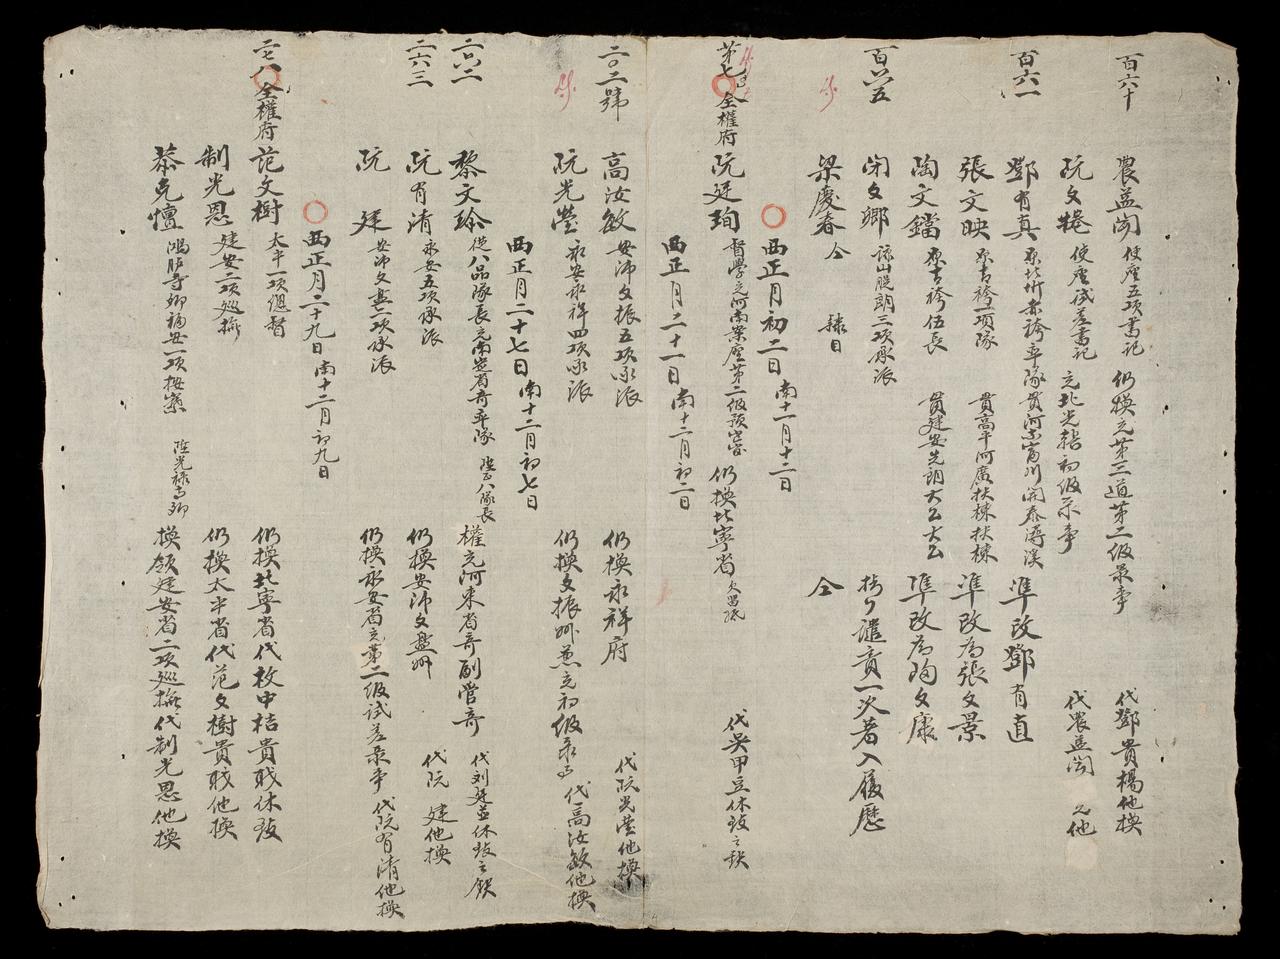 百六十 農益聞 使座五項書記 仍換充第三道第二級录事 代鄧貴楊他換
阮文捲 使座試差書記 充北光轄初級录事 代農益聞 之他
百六一 鄧有真 貫河 準改鄧有直
張文映 袴一項隊 貫高平河廣扶楝扶楝 準改為張文景
陶文鐺 袴伍長 貫建安先朗大公大公 準改為陶文康
百六五 闭文鄉 諒山脱朗三項承派 譴責一次著入履歷
梁慶春 仝 隸目 仝
西正月初二日 南十一月十二日
第七 全權府 阮廷珣 督學充河南案座第二級預審 仍換北寧省 代吴甲豆休致之缺
西正月二十一日 南十二月初一日
二〇二號 高汝敏 安沛文振五項承派 仍換永祥府 代阮光瑩他換
阮光瑩 永安永祥四項承派 仍換文振州兼充初級承 代高汝敏他換
西正月二十七日 南十二月初七日
二〇二 黎文瑜 從八品隊長充南定省奇率隊 陞正八隊長 權充河東省奇副管奇 代刘廷益休致之缺
二六三 阮有清 永安五項承派 仍換安沛文盤州 代阮廷他換
阮廷 安沛文盤一項承派 仍換永安省充第二級試差录事 代阮有清他換
西正月二十九日 南十二月初九日
二七八 全權府 范文樹 太平一項總督 仍換北寧省代枚中桔貴職休致
制光恩 建安二項巡撫 仍換太平省代范文樹貴職他換
恭克憻 鴻臚寺卿福安一項按察 陞光禄寺卿 換領建安省二項巡撫代制光恩他換